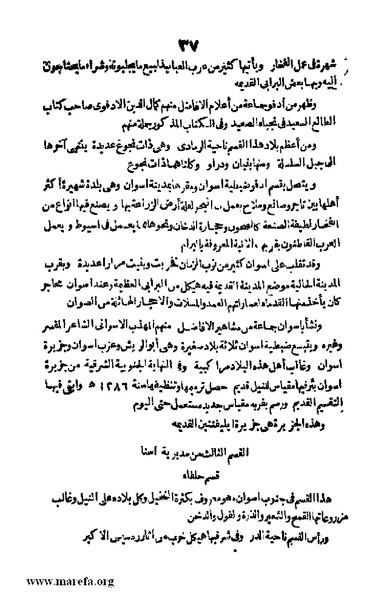 ٣٧
شهرة في عمل الفخار ويأتيها كثير من عرب العبابدة لبيع ما يجلبونه وشراء ما يحتاجون
إليه وبها بعض البرابي القديمه
وظهر من أدفو جماعة من أعلام الافاضل منهم كمال الدين الادفوى صاحب كتاب
الطالع السعيد في نجباء الصعيد وفى الكتاب المذكور جلة منهم
ومن أعظم بلاد هذا القسم ناحية الرمادى وهى ذات نجوع عديدة ينتهى آخرها
الى جبل السلسلة ومنها بنبان ودراو وكلتاهما ذات نجوع
ويتصل بقسم ادفو ضبطية اسوان ومقرها مدينة اسوان وهى بلدة شهيرة أكثر
أهلها بين تاجر وصانع وملاح لقلة أرض الزراعة بها ويصنع فيها أنواع من
الفخار لطيفة الصنعة كالصحون وحجارة الدخان ونحوها ما يعمل في اسيوط ويعمل
العرب القاطنون بقربها الآنية المعروفة بالبرام
وقد تقلب على اسوان كثير من نوب الزمان فخربت وبنيت مرارا عديدة وبقرب
المدينة الحالية موضع المدينة القديمة فيه هيكل من البرابي العظيمة وعند اسوان محاجر
كان يأخذ منها القدماء لعماراتهم العمد والمسلات والاحجار الهائلة من الصوان
ونشأ باسوان جماعة من مشاهير الافاضل منهم المهذب الاسوانى الشاعر المفسر
وغيره ويتبع ضبطية اسوان ثلاثة بلاد صغيرة وهى أبو الريش وغرب اسوان وجزيرة
اسوان وغالب أهل هذه البلاد مراكبية وفى النهاية الجنوبية الشرقية من جزيرة
اسوان بئر فيها مقياس للنيل قديم حصل ترميمها وتنظيفها سنة ١٢٨٦ ه وابقى فيها
التقسيم القديم ورسم بقربه مقياس جديد مستعمل حتى اليوم
وهذه الجزيرة هى جزيرة ايليفنتين القديمه
القسم الثالث من مديرية اسنا
قسم حلفاء
هذا القسم في جنوب اسوان وهو معروف بكثرة النخيل وكل بلاده على النيل وغالب
مزروعاتها القمح والشعير والذرة والفول والدخن
ورأس القسم ناحية الدر وفى شرقيها هيكل خرب من آثار رمسيس الاكبر
www.marefa.org